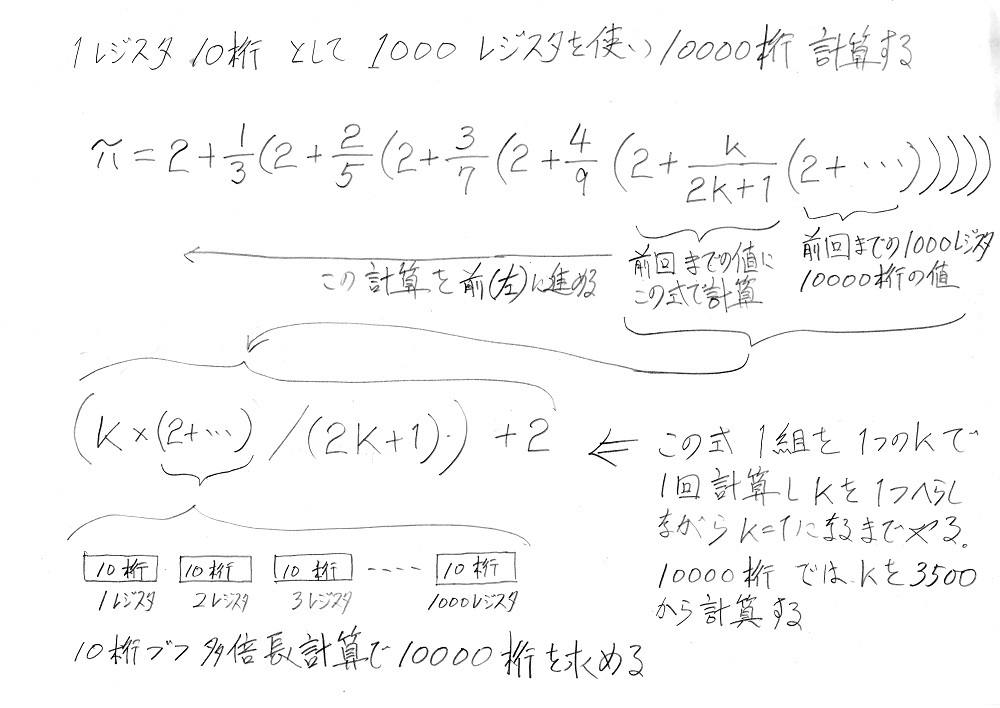 1レジスタ 10桁 として 1000 レジスタを使い 10000桁 計算する
π = 2 + 1/3 (2 + 2/5 (2 + 3/7 (2 + 4/9 (2 + k/(2k+1) (2 + ⋯)))))
前回までの値に
この式で計算
前回までの1000レジスタ
10000桁の値
この計算を前(左)に進める
(k × (2+⋯) / (2k+1)・) + 2
⇐ この式 1組を 1つのkで
1回計算し kを1つへらし
ながら k=1になるまでやる。
10000桁 では kを3500
から計算する
10桁 10桁 10桁 ---- 10桁
1レジスタ 2レジスタ 3レジスタ 1000レジスタ
10桁づつ 多倍長計算で10000桁を求める